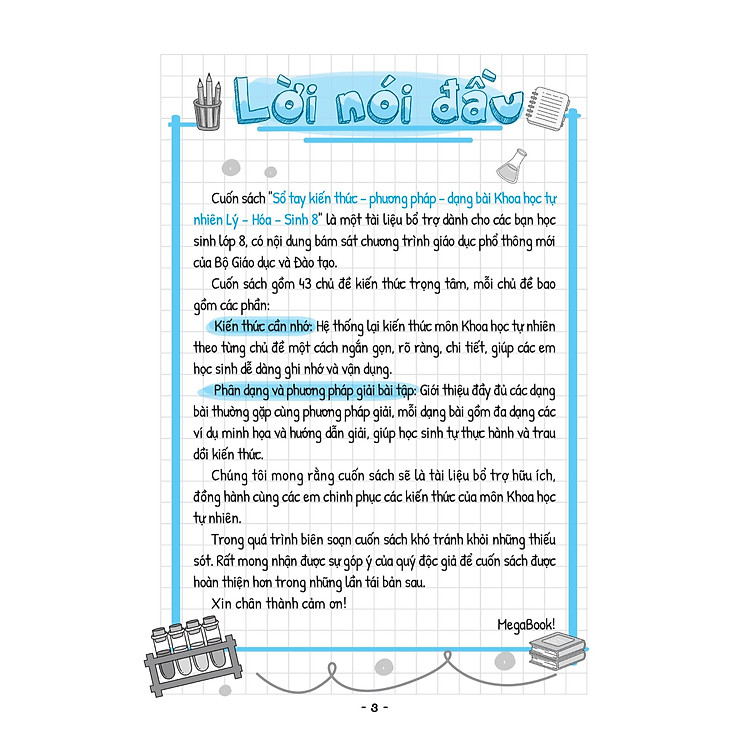 Lời nói đầu
Cuốn sách "Sổ tay kiến thức – phương pháp – dạng bài Khoa học tự
nhiên Lý – Hóa – Sinh 8" là một tài liệu bổ trợ dành cho các bạn học
sinh lớp 8, có nội dung bám sát chương trình giáo dục phổ thông mới
của Bộ Giáo dục và Đào tạo.
Cuốn sách gồm 43 chủ đề kiến thức trọng tâm, mỗi chủ đề bao
gồm các phần:
Kiến thức cần nhớ: Hệ thống lại kiến thức môn Khoa học tự nhiên
theo từng chủ đề một cách ngắn gọn, rõ ràng, chi tiết, giúp các em
học sinh dễ dàng ghi nhớ và vận dụng.
Phân dạng và phương pháp giải bài tập: Giới thiệu đầy đủ các dạng
bài thường gặp cùng phương pháp giải, mỗi dạng bài gồm đa dạng các
ví dụ minh họa và hướng dẫn giải, giúp học sinh tự thực hành và trau
dồi kiến thức.
Chúng tôi mong rằng cuốn sách sẽ là tài liệu bổ trợ hữu ích,
đồng hành cùng các em chinh phục các kiến thức của môn Khoa học
tự nhiên.
Trong quá trình biên soạn cuốn sách khó tránh khỏi những thiếu
sót. Rất mong nhận được sự góp ý của quý độc giả để cuốn sách được
hoàn thiện hơn trong những lần tái bản sau.
Xin chân thành cảm ơn!
MegaBook!
- 3 -